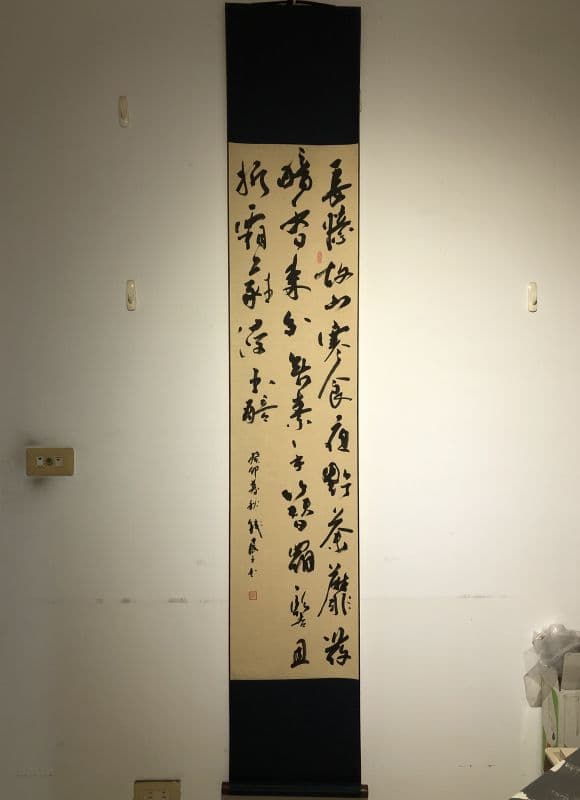 長憶故山寒食夜野荼蘼發
暗香來分無素手簪羅髻且
折霜蕤浸玉醅
癸卯暮秋錢